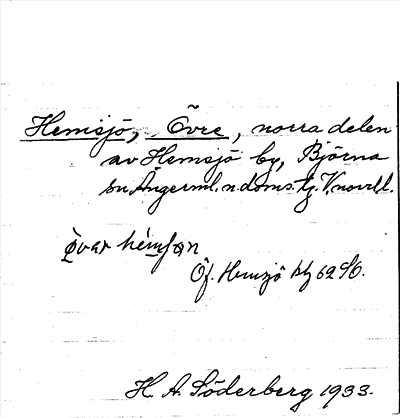 Hemsjö, Övre, norra delen
av Hemsjö by, Björna
sn. Ångerml. n doms. tj. V.norrl. l.
Öf. Hemsjö blg 62 SO.
H. A. Söderberg 1933.